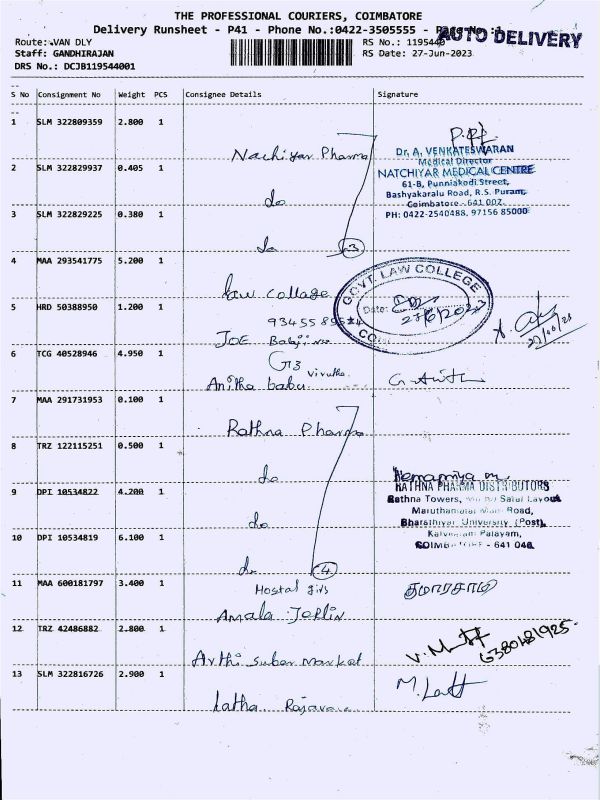 THE PROFESSIONAL COURIERS, COIMBATORE
Delivery Runsheet - P41 - Phone No.:0422-3505555 - Page No :1
AUTO DELIVERY
Route: VAN DLY
RS No.: 1195440
Staff: GANDHIRAJAN
RS Date: 27-Jun-2023
DRS No.: DCJB119544001
S No Consignment No Weight PCS Consignee Details Signature
1 SLM 322809359 2.800 1 Nachiyar Pharma
Dr. A. VENKATESWARAN
Medical Director
NATCHIYAR MEDICAL CENTRE
61-B, Punniakodi Street,
Bashyakaralu Road, R.S. Puram,
Coimbatore - 641 002.
PH: 0422-2540488, 97156 85000
2 SLM 322829937 0.405 1 do
3 SLM 322829225 0.380 1 do
3
4 MAA 293541775 5.200 1 Law Collage
GOVT. LAW COLLEGE
Date:
27/6/2023
5 HRD 50388950 1.200 1
JOE
6 TCG 40528946 4.950 1 G3
Anitha babu
7 MAA 291731953 0.100 1 Rathna Pharma
8 TRZ 122115251 0.500 1 do
RATHNA PHARMA DISTRIBUTORS
Rathna Towers, Layout
Maruthamalai Main Road,
Bharathiyar University (Post),
Kalveeram Palayam,
COIMBATORE - 641 046.
9 DPI 10534822 4.200 1 do
10 DPI 10534819 6.100 1 do
4
11 MAA 600181797 3.400 1 Hostal girls
Amala Jeklin
குமாரசாமி
12 TRZ 42486882 2.800 1 Arthi suber market
6380481925
13 SLM 322816726 2.900 1 Latha